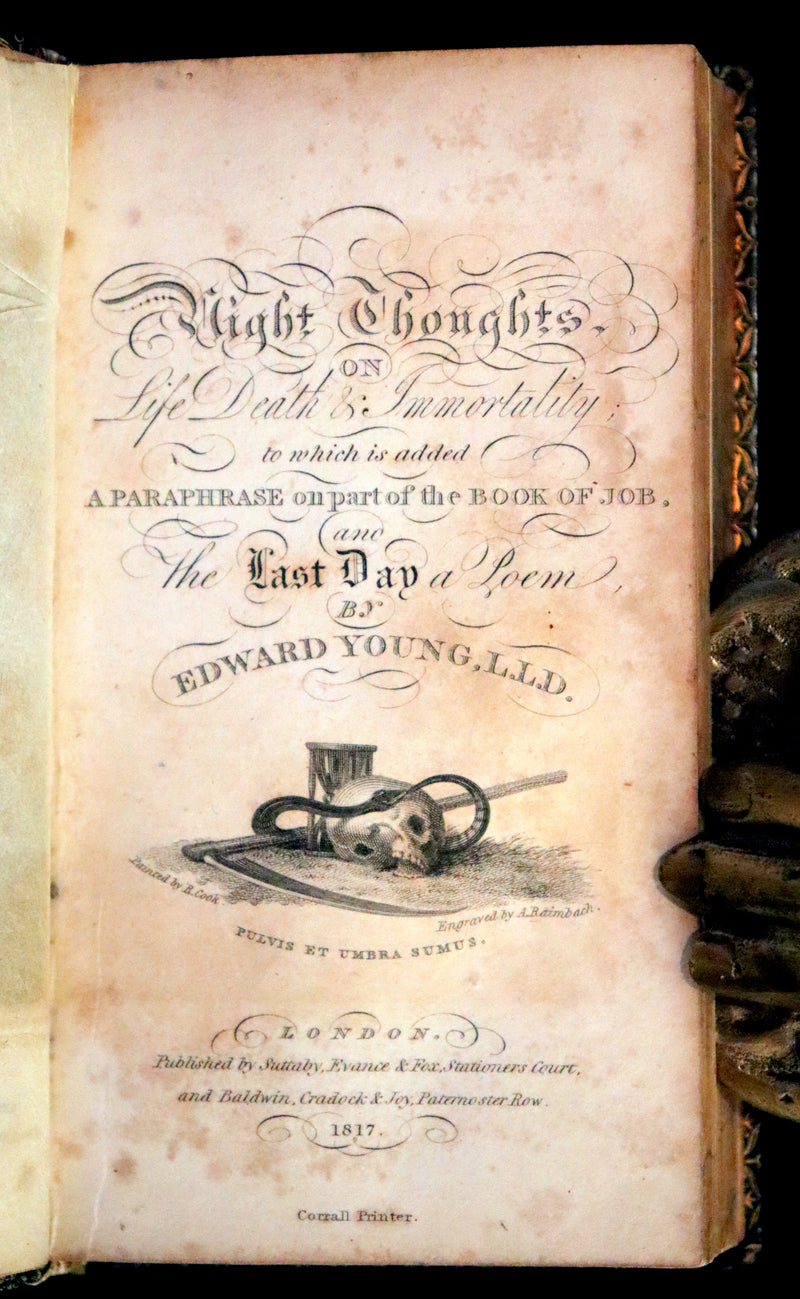 Night Thoughts,
ON
Life Death & Immortality;
to which is added
A PARAPHRASE on part of the BOOK OF JOB,
and
the Last Day a Poem,
BY
EDWARD YOUNG, L.L.D.
Painted by R. Cook
Engraved by A. Raimbach.
PULVIS ET UMBRA SUMUS.
LONDON.
Published by Suttaby, Evance & Fox, Stationers Court,
and Baldwin, Cradock & Joy, Paternoster Row.
1817.
Corrall Printer.